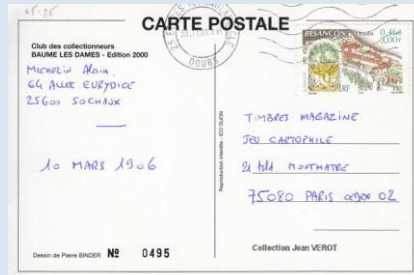 25-25
CARTE POSTALE
Club des collectionneurs
BAUME LES DAMES - Edition 2000
MICHELIN Alain.
64 ALLEE EURYDICE
25600 SOCHAUX
10 MARS 1906
Dessin de Pierre BINDER Nº 0495
Reproduction interdite - ICO DIJON
DOUBS
BESANÇON
0,46€
3,00F
RF
TIMBRES MAGAZINE
JEU CARTOPHILE
21 bld MONTMATRE
75080 PARIS CEDEX 02
Collection Jean VEROT